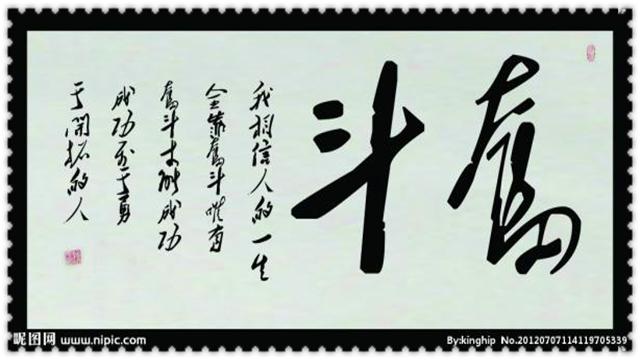 奮斗
我相信人的一生
全靠奮斗唯有
奮斗才能成功
成功属于勇
于開拓的人
昵图网 www.nipic.com
By:kinghip No.20120707114119705339